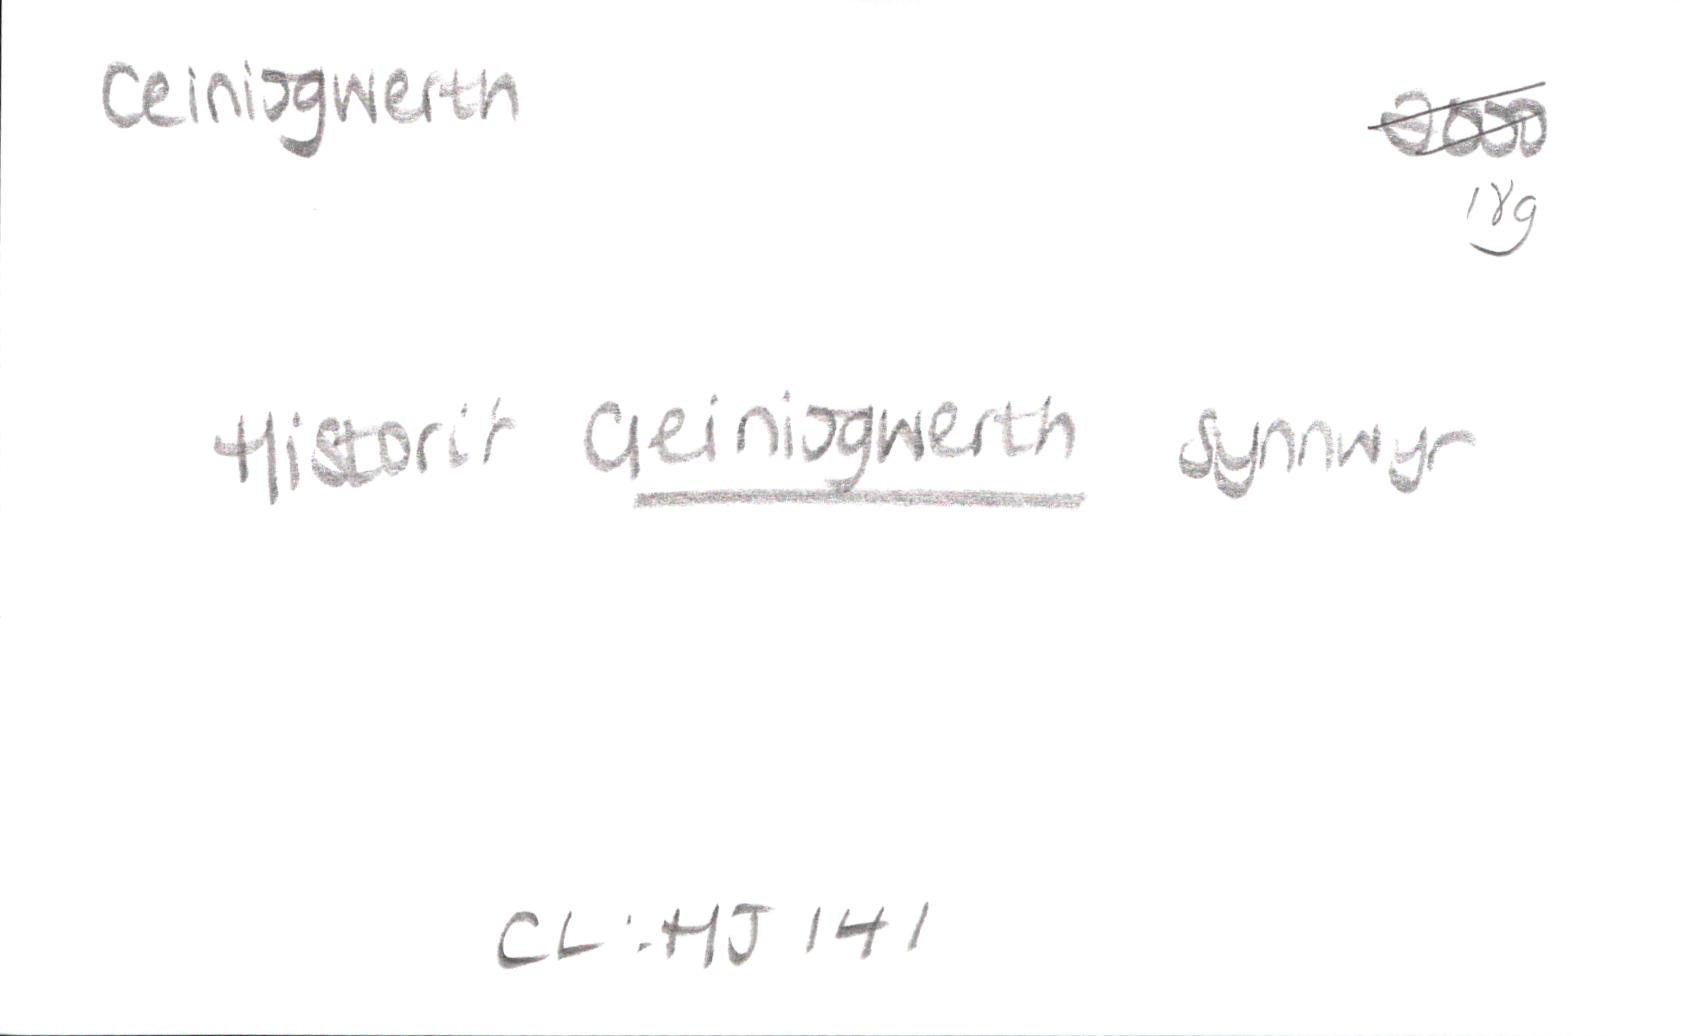 Ceiniogwerth
18g
Historir Geiniogwerth Synnwyr
CL: HJ 141